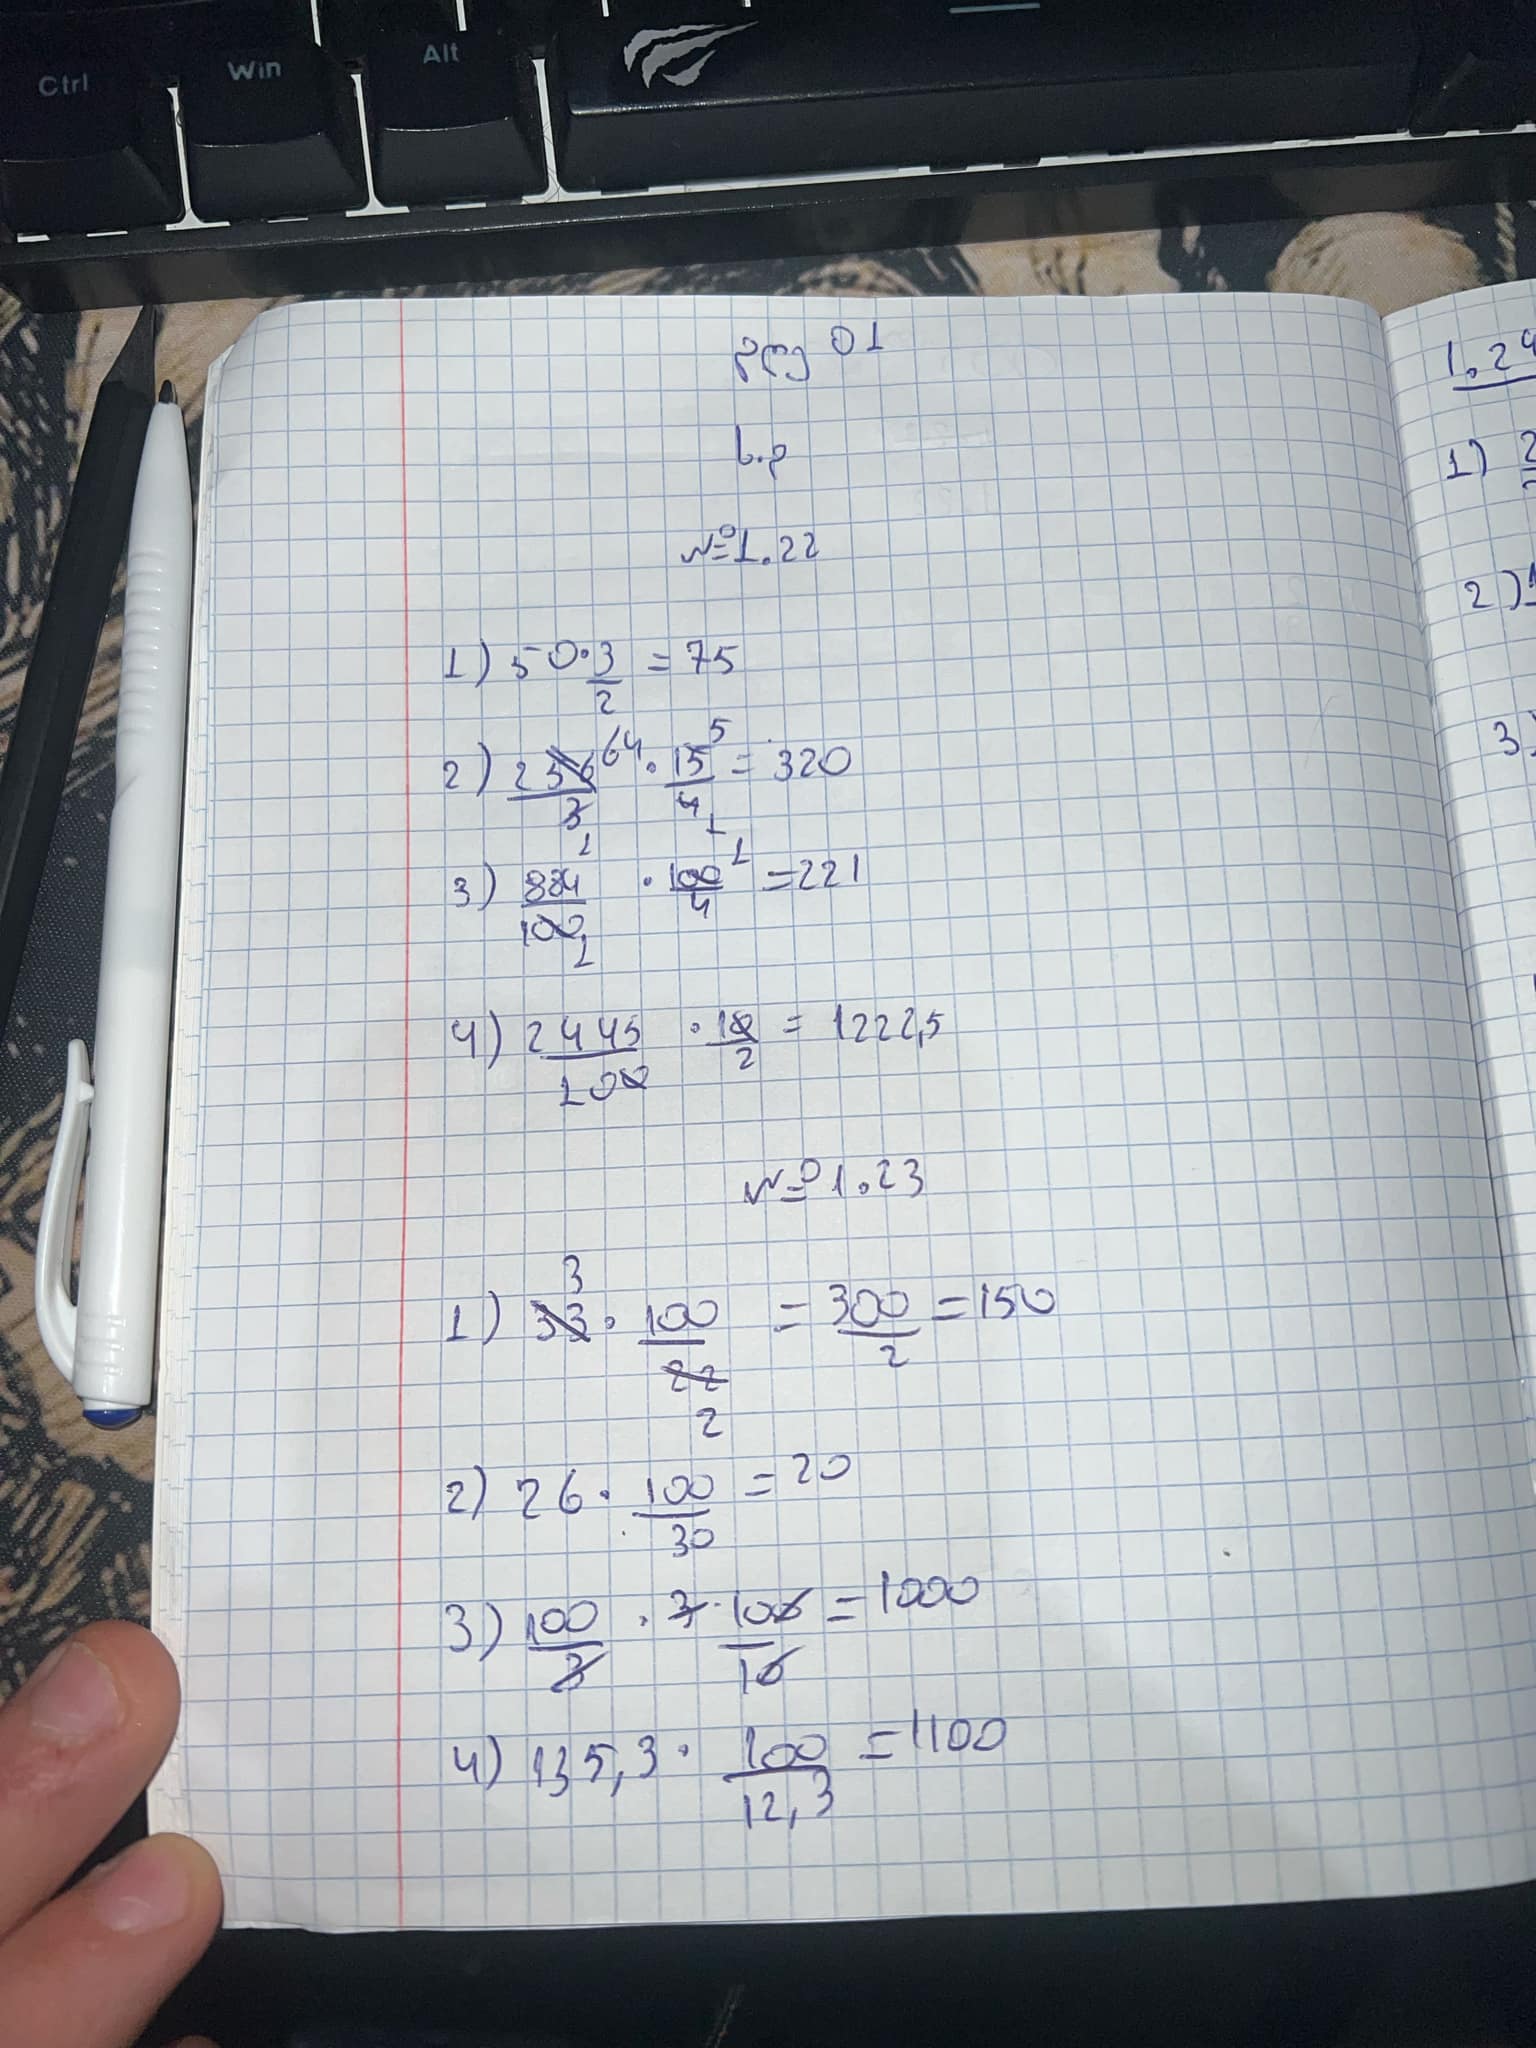 Ctrl Win Alt
დღე 01
ს.დ
№1.22
1) 50·3/2 = 75
2) 256/3 64 · 15/4 5 = 320
1 1
3) 884/100 · 100/4 1 = 221
1
4) 2445/100 · 10/2 = 1222,5
№1.23
3
1) 33 · 100/22 = 300/2 = 150
2
2) 26 · 100/30 = 20
3) 100/3 · 3 · 100/10 = 1000
4) 135,3 · 100/12,3 = 1100
1.24
1) 2
2) 1
3)